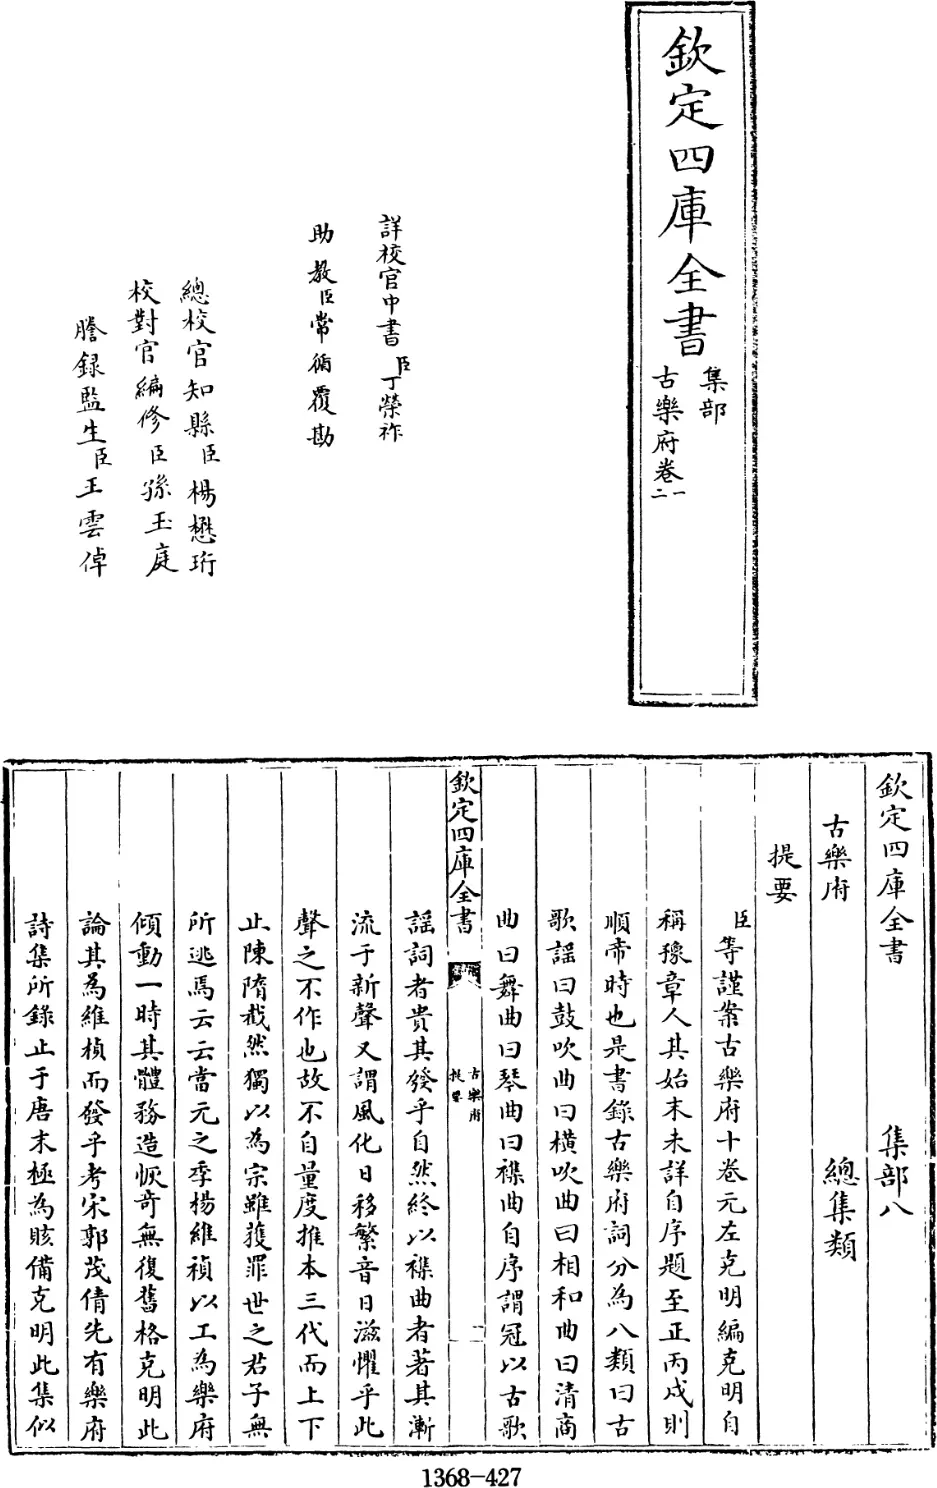 欽定四庫全書
集部
古樂府卷一二
詳校官中書臣丁榮祚
助教臣常循覆勘
總校官知縣臣楊懋珩
校對官編修臣孫玉庭
謄錄監生臣王雲倬
欽定四庫全書 集部八
古樂府 總集類
提要
臣等謹案古樂府十卷元左克明編克明自
稱豫章人其始末未詳自序題至正丙戌則
順帝時也是書錄古樂府詞分為八類曰古
歌謡曰鼓吹曲曰横吹曲曰相和曲曰清商
曲曰舞曲曰琴曲曰襍曲自序謂冠以古歌
欽定四庫全書
古樂府
提要
一
謡詞者貴其發乎自然終以襍曲者著其漸
流于新聲又謂風化日移繁音日滋懼乎此
聲之不作也故不自量度推本三代而上下
止陳隋截然獨以為宗雖獲罪世之君子無
所逃焉云云當元之季楊維禎以工為樂府
傾動一時其體務造恢奇無復舊格克明此
論其為維楨而發乎考宋郭茂倩先有樂府
詩集所錄止于唐末極為賅備克明此集似
1368-427